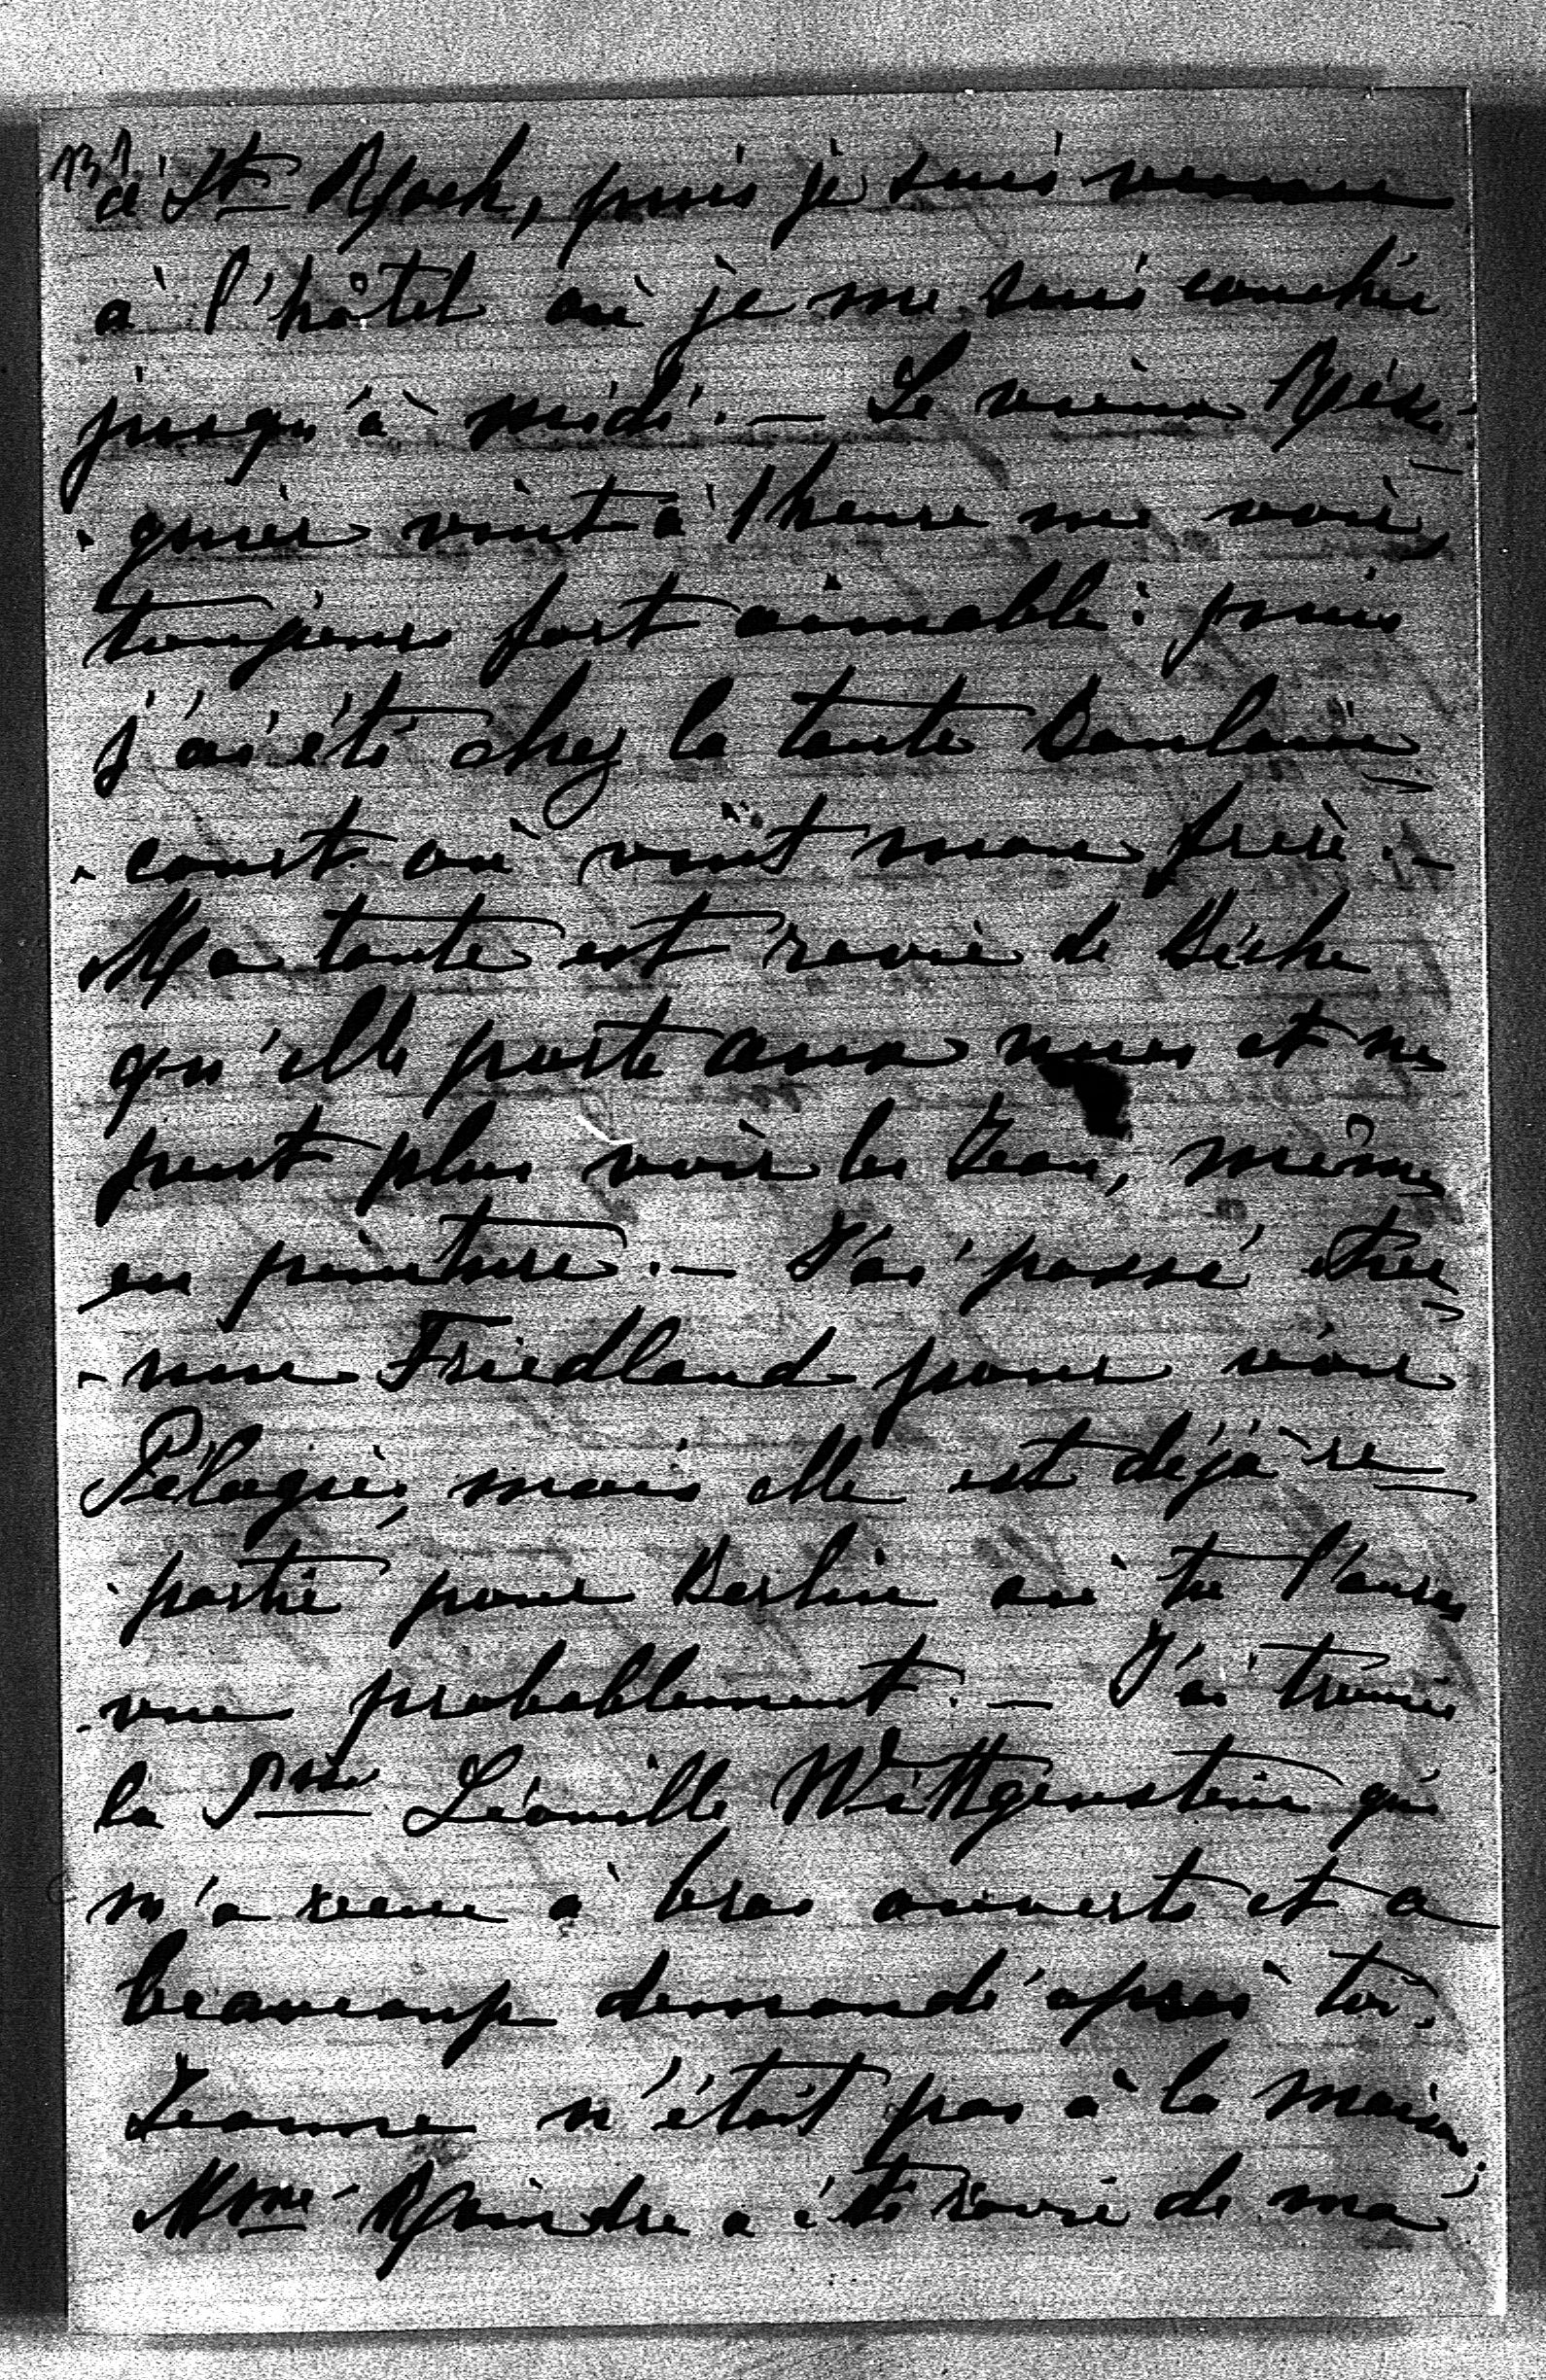 131
à St Roch, puis je suis venue
à l'hôtel où je me suis couchée
jusqu'à midi. — Le vieux
-quier vint à 1 heure me voir,
toujours fort aimable: puis
j'ai été chez la tante Boulain-
-court où vint mon frère. —
Ma tante est ravie de Biche
qu'elle porte aux nues et ne
peut plus voir les Jean, même
en peinture. — J'ai passé Ave-
-nue Friedland pour voir
Pélagie, mais elle est déjà re-
-partie pour Berlin où tu l'auras
vue probablement. — J'ai trouvé
la Psse Léonille Wittgenstein qui
m'a reçue à bras ouverts et a
beaucoup demandé après toi.
Jeanne n'était pas à la maison;
Mme a été ravie de ma